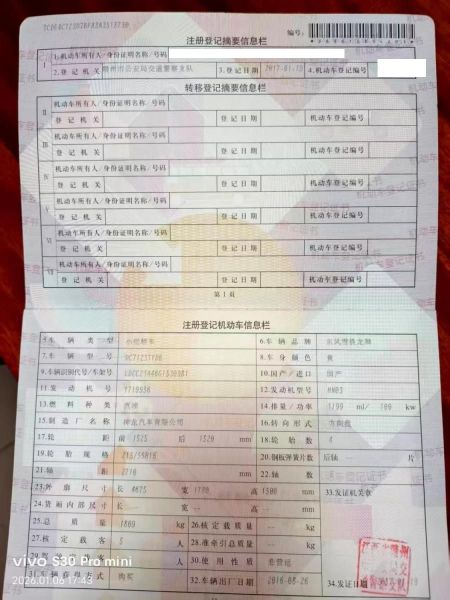 注册登记摘要信息栏
编号:
1.机动车所有人/身份证明名称/号码
2.登记机关 赣州市公安局交通警察支队 3.登记日期 2017-01-13 4.机动车登记编号
转移登记摘要信息栏
II 机动车所有人/身份证明名称/号码
登记机关 登记日期 机动车登记编号
III 机动车所有人/身份证明名称/号码
登记机关 登记日期 机动车登记编号
IV 机动车所有人/身份证明名称/号码
登记机关 登记日期 机动车登记编号
V 机动车所有人/身份证明名称/号码
登记机关 登记日期 机动车登记编号
VI 机动车所有人/身份证明名称/号码
登记机关 登记日期 机动车登记编号
VII 机动车所有人/身份证明名称/号码
登记机关 登记日期 机动车登记编号
第1页
注册登记机动车信息栏
5.车辆类型 小型轿车 6.车辆品牌 东风雪铁龙牌
7.车辆型号 8.车身颜色 黄
9.车辆识别代号/车架号 10.国产/进口 国产
11.发动机号 12.发动机型号
13.燃料种类 汽油 14.排量/功率 1199 ml/ 100 kw
15.制造厂名称 神龙汽车有限公司 16.转向形式 方向盘
17.轮距 前 1525 后 1520 mm 18.轮胎数 4
19.轮胎规格 20.钢板弹簧片数 后轴 片
21.轴距 2710 mm 22.轴数
23.外廓尺寸 长 4675 宽 1780 高 1500 mm 33.发证机关章
24.货厢内部尺寸 长 宽 高 mm
25.总质量 kg 26.核定载质量 kg
27.核定载客 5 人 28.准牵引总质量 kg
30.使用性质 非营运
方式 购买 32.车辆出厂日期 2016-08-26 34.发证日期
vivo S30 Pro mini
2026.01.06 17:43